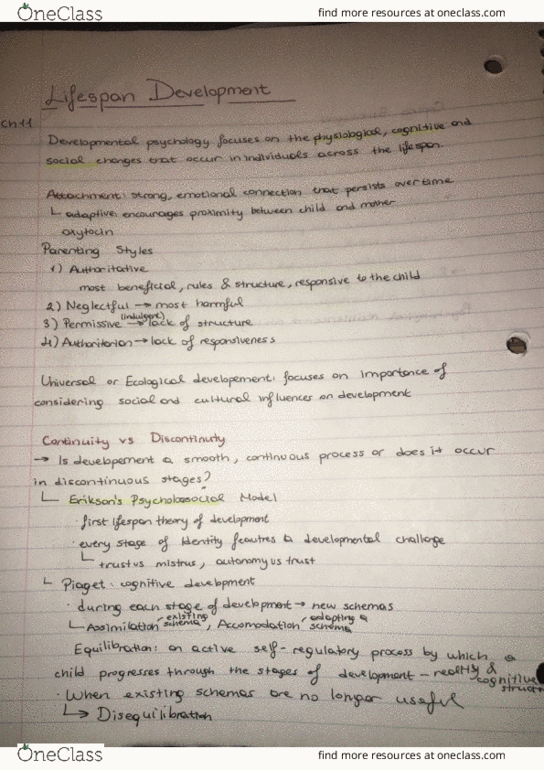 OneClass find more resources at oneclass.com
Lifespan Development
Ch11
Developmental psychology focuses on the physiological, cognitive and
social changes that occur in individuals across the lifespan.
Attachment: strong, emotional connection that persists over time
└ adaptive: encourages proximity between child and mother
oxytocin
Parenting Styles
1) Authoritative
most beneficial, rules & structure, responsive to the child
2) Neglectful → most harmful
3) Permissive (indulgent) → lack of structure
4) Authoritarian → lack of responsiveness
Universal or Ecological developement: focuses on importance of
considering social and cultural influences on development
Continuity vs Discontinuty
→ Is developement a smooth, continuous process or does it occur
in discontinuous stages?
└ Erikson's Psychologsocial Model
· first lifespan theory of development
· every stage of identity feautres a developmental challage
└ trust vs mistrus, autonomy vs trust
└ Piaget: cognitive development
· during each stage of development → new schemas
└ Assimilation existing schema, Accomodation adapting a schema
Equilibration: an active self-regulatory process by which a
child progresses through the stages of development – reality & cognitive
· When existing schemes are no longer useful
↳ Disequilibration
OneClass find more resources at oneclass.com